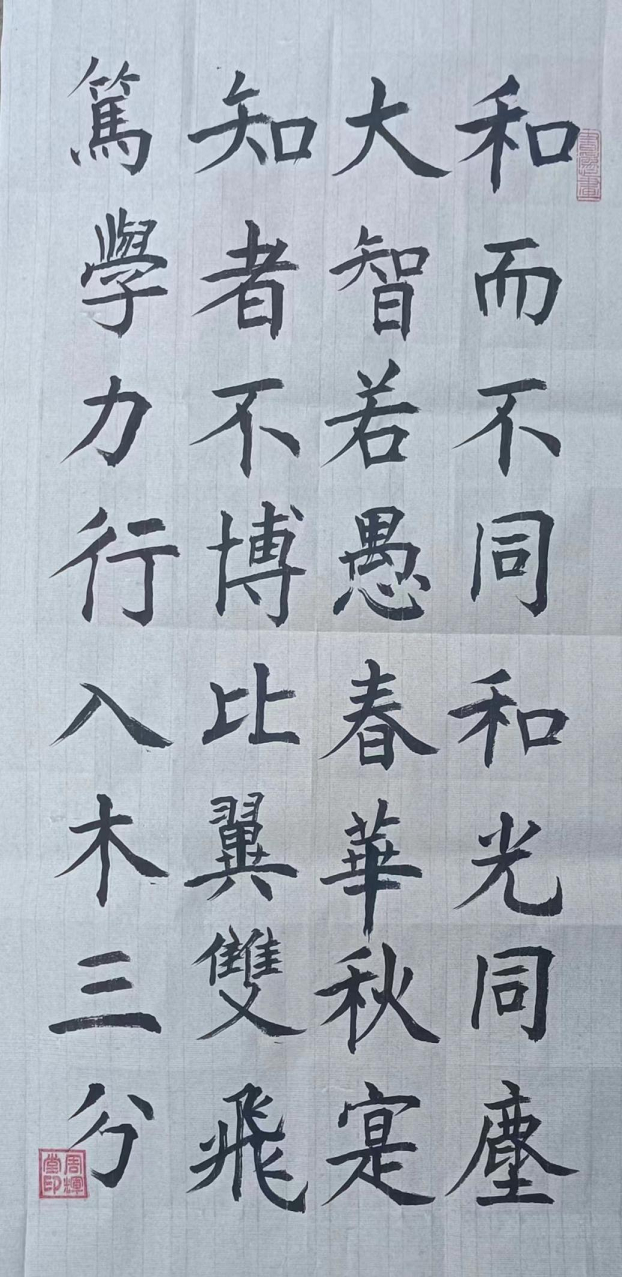 和而不同和光同塵
大智若愚春華秋寔
知者不博比翼雙飛
篤學力行入木三分
周輝堂印